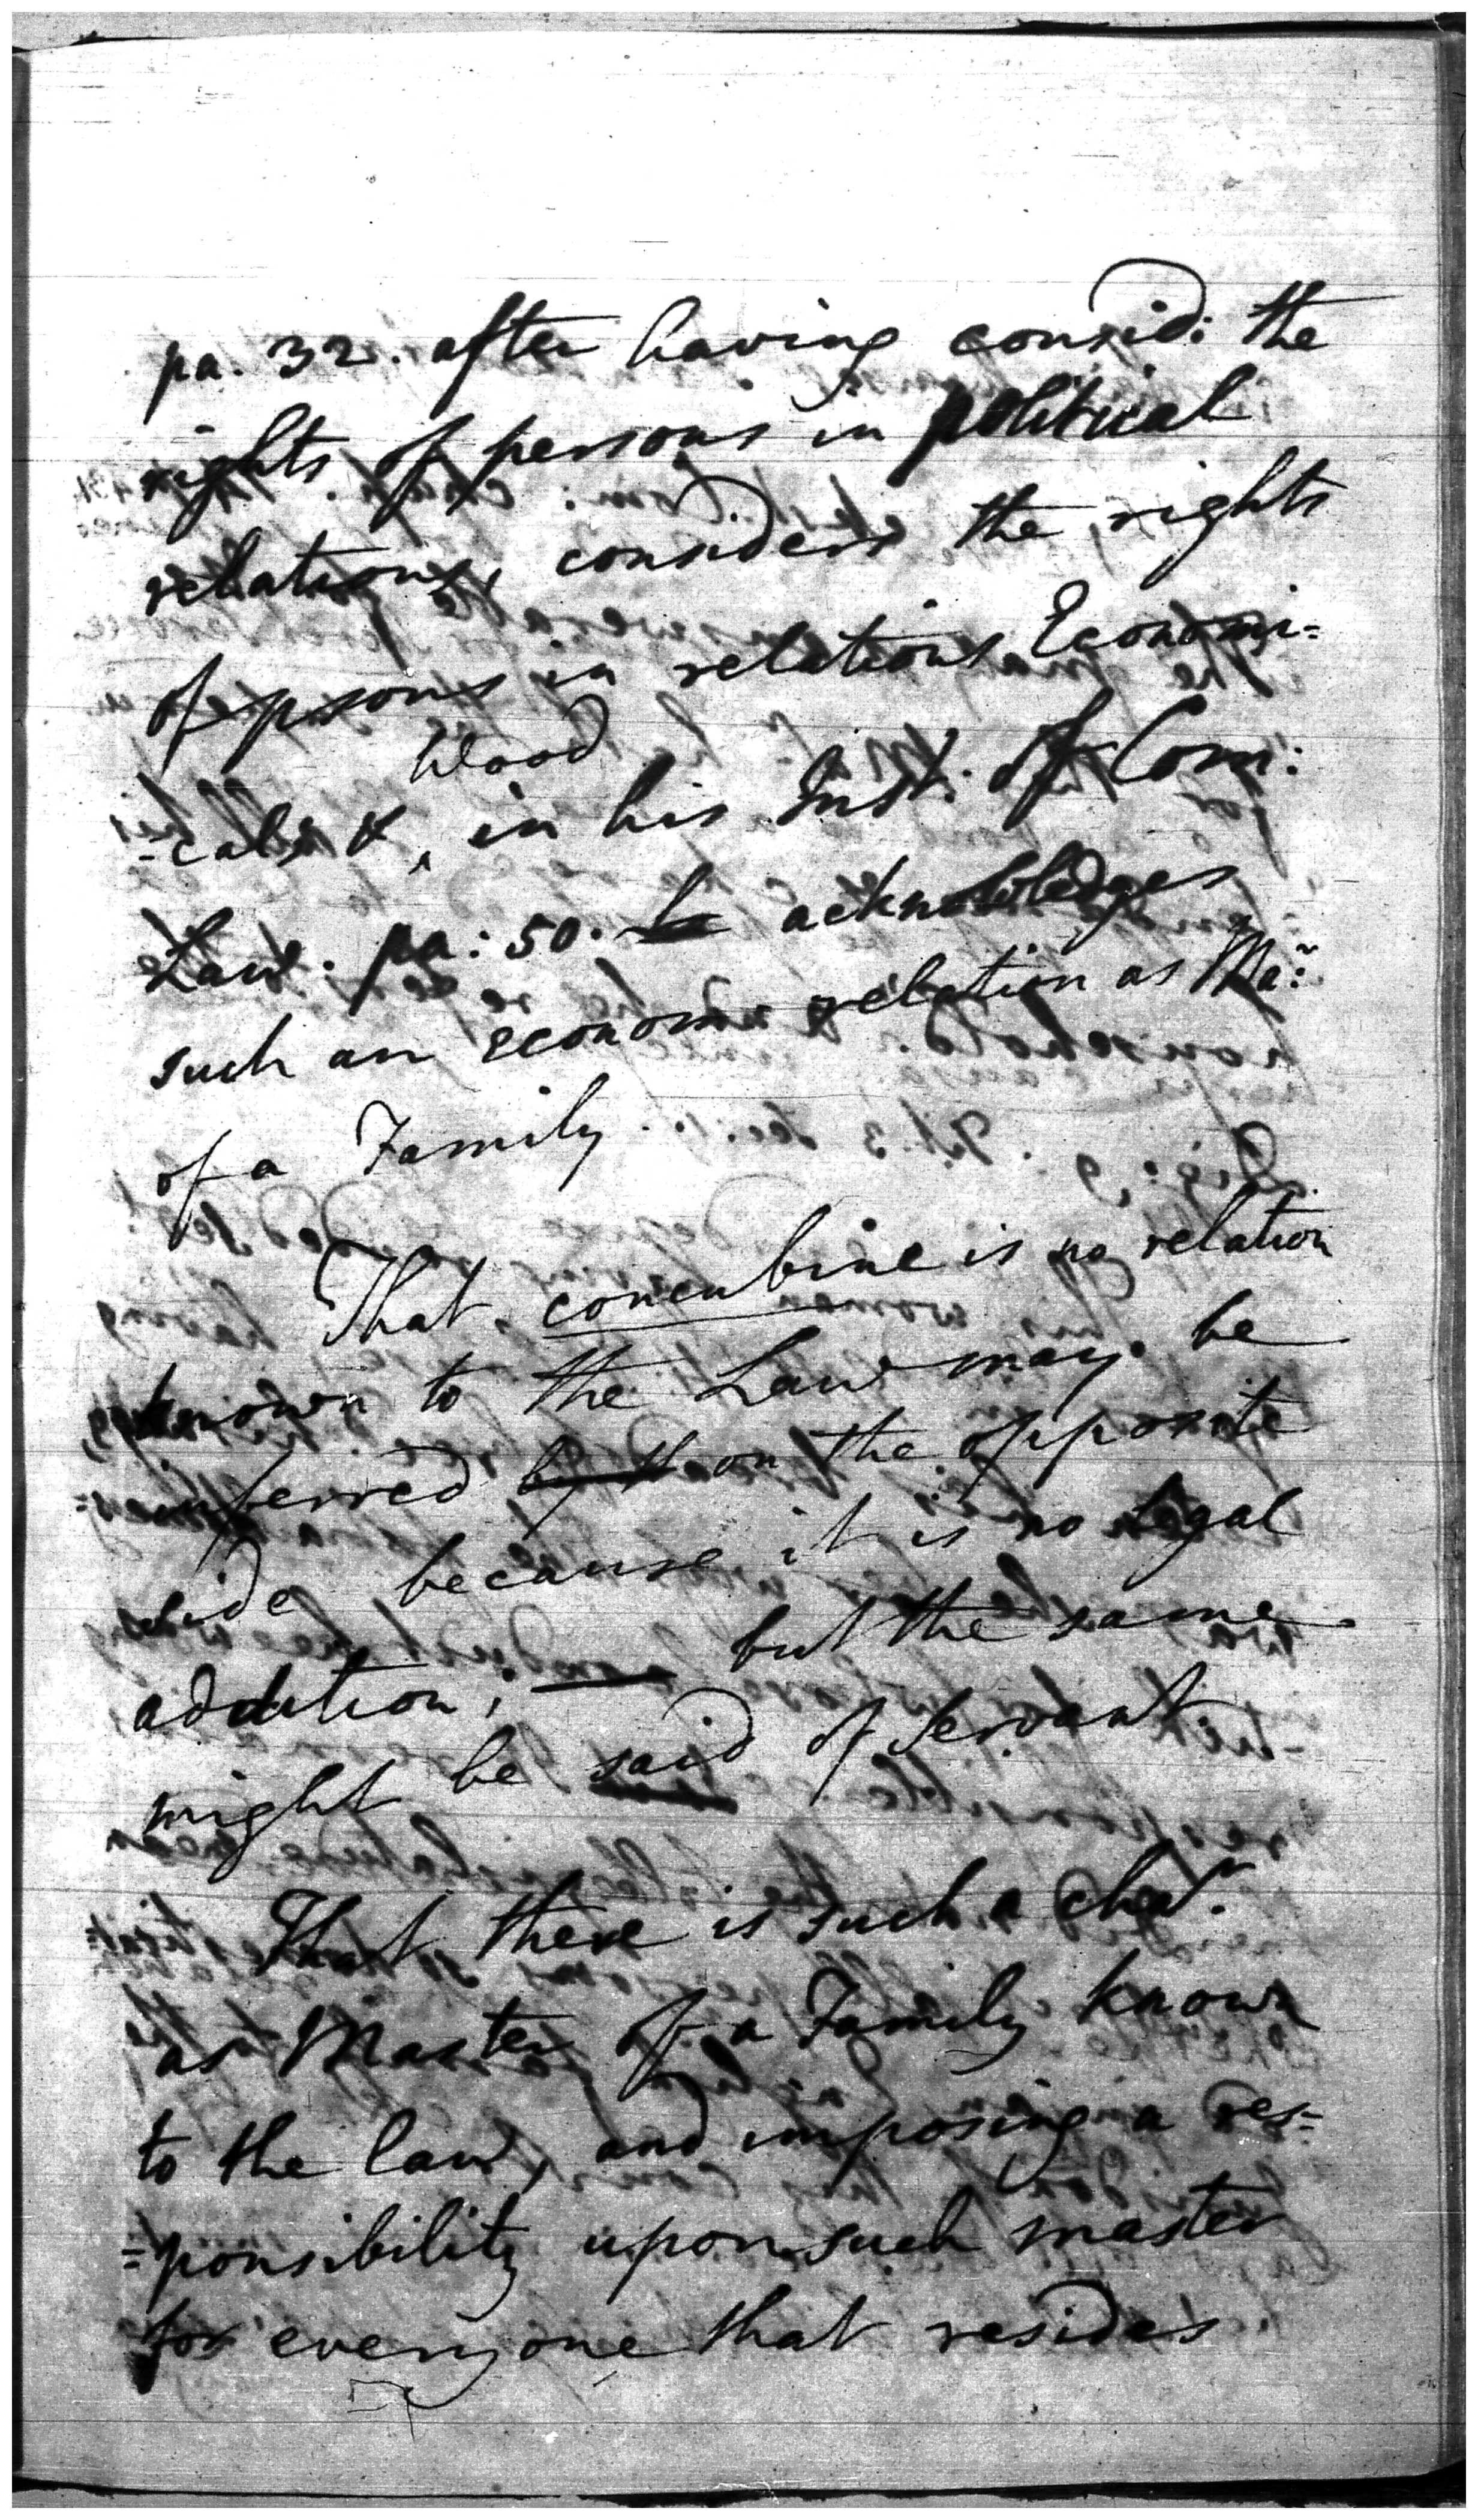 pa. 32. after having consid: the
rights of persons in political
relations, considers the rights
of psons in relations Economi=
Wood
=cal, & ‸ in his Inst. of Com:
Law. pa: 50. he acknowledges
such an economi relation as Ma:r
of a Family.
That concubine is no relation
known to the Law may be
inferred by th on the opposite
side because it is no legal
addition; but the same
might be said of Servant
That there is such a char.
as Master of a Family known
to the law, and imposing a res=
=ponsibility upon such master
for everyone that resides